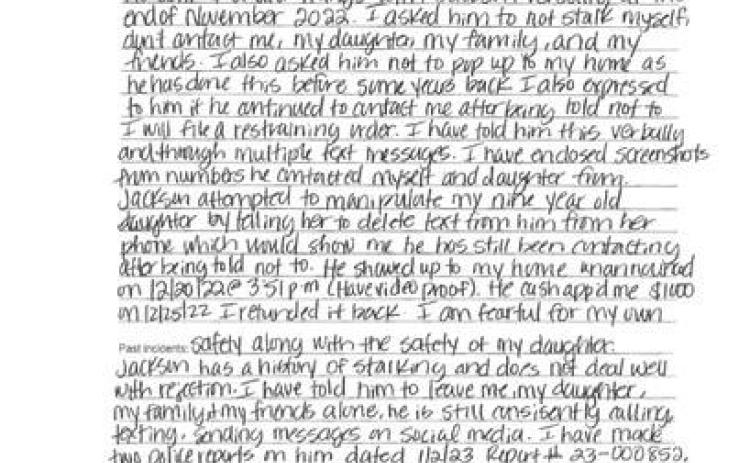 end of November 2022. I asked him to not stalk myself,
dont contact me, my daughter, my family, and my
friends. I also asked him not to pop up to my home as
he has done this before some years back I also expressed
to him if he continued to contact me after being told not to
I will file a restraining order. I have told him this verbally
and through multiple text messages. I have enclosed screenshots
from numbers he contacted myself and daughter from.
Jackson attempted to manipulate my nine year old
daughter by telling her to delete text from him from her
phone which would show me he has still been contacting
after being told not to. He showed up to my home unannounced
on 12/20/22@ 351pm (Have video proof). He cash app'd me $1000
on 12/25/22 I returned it back. I am fearful for my own
Past Incidents: safety along with the safety of my daughter.
Jackson has a history of stalking and does not deal well
with rejection. I have told him to leave me, my daughter,
my family, + my friends alone, he is still consistently calling,
texting, sending messages on social media. I have made
two police reports on him dated 1/2/23 Report # 23-000852,